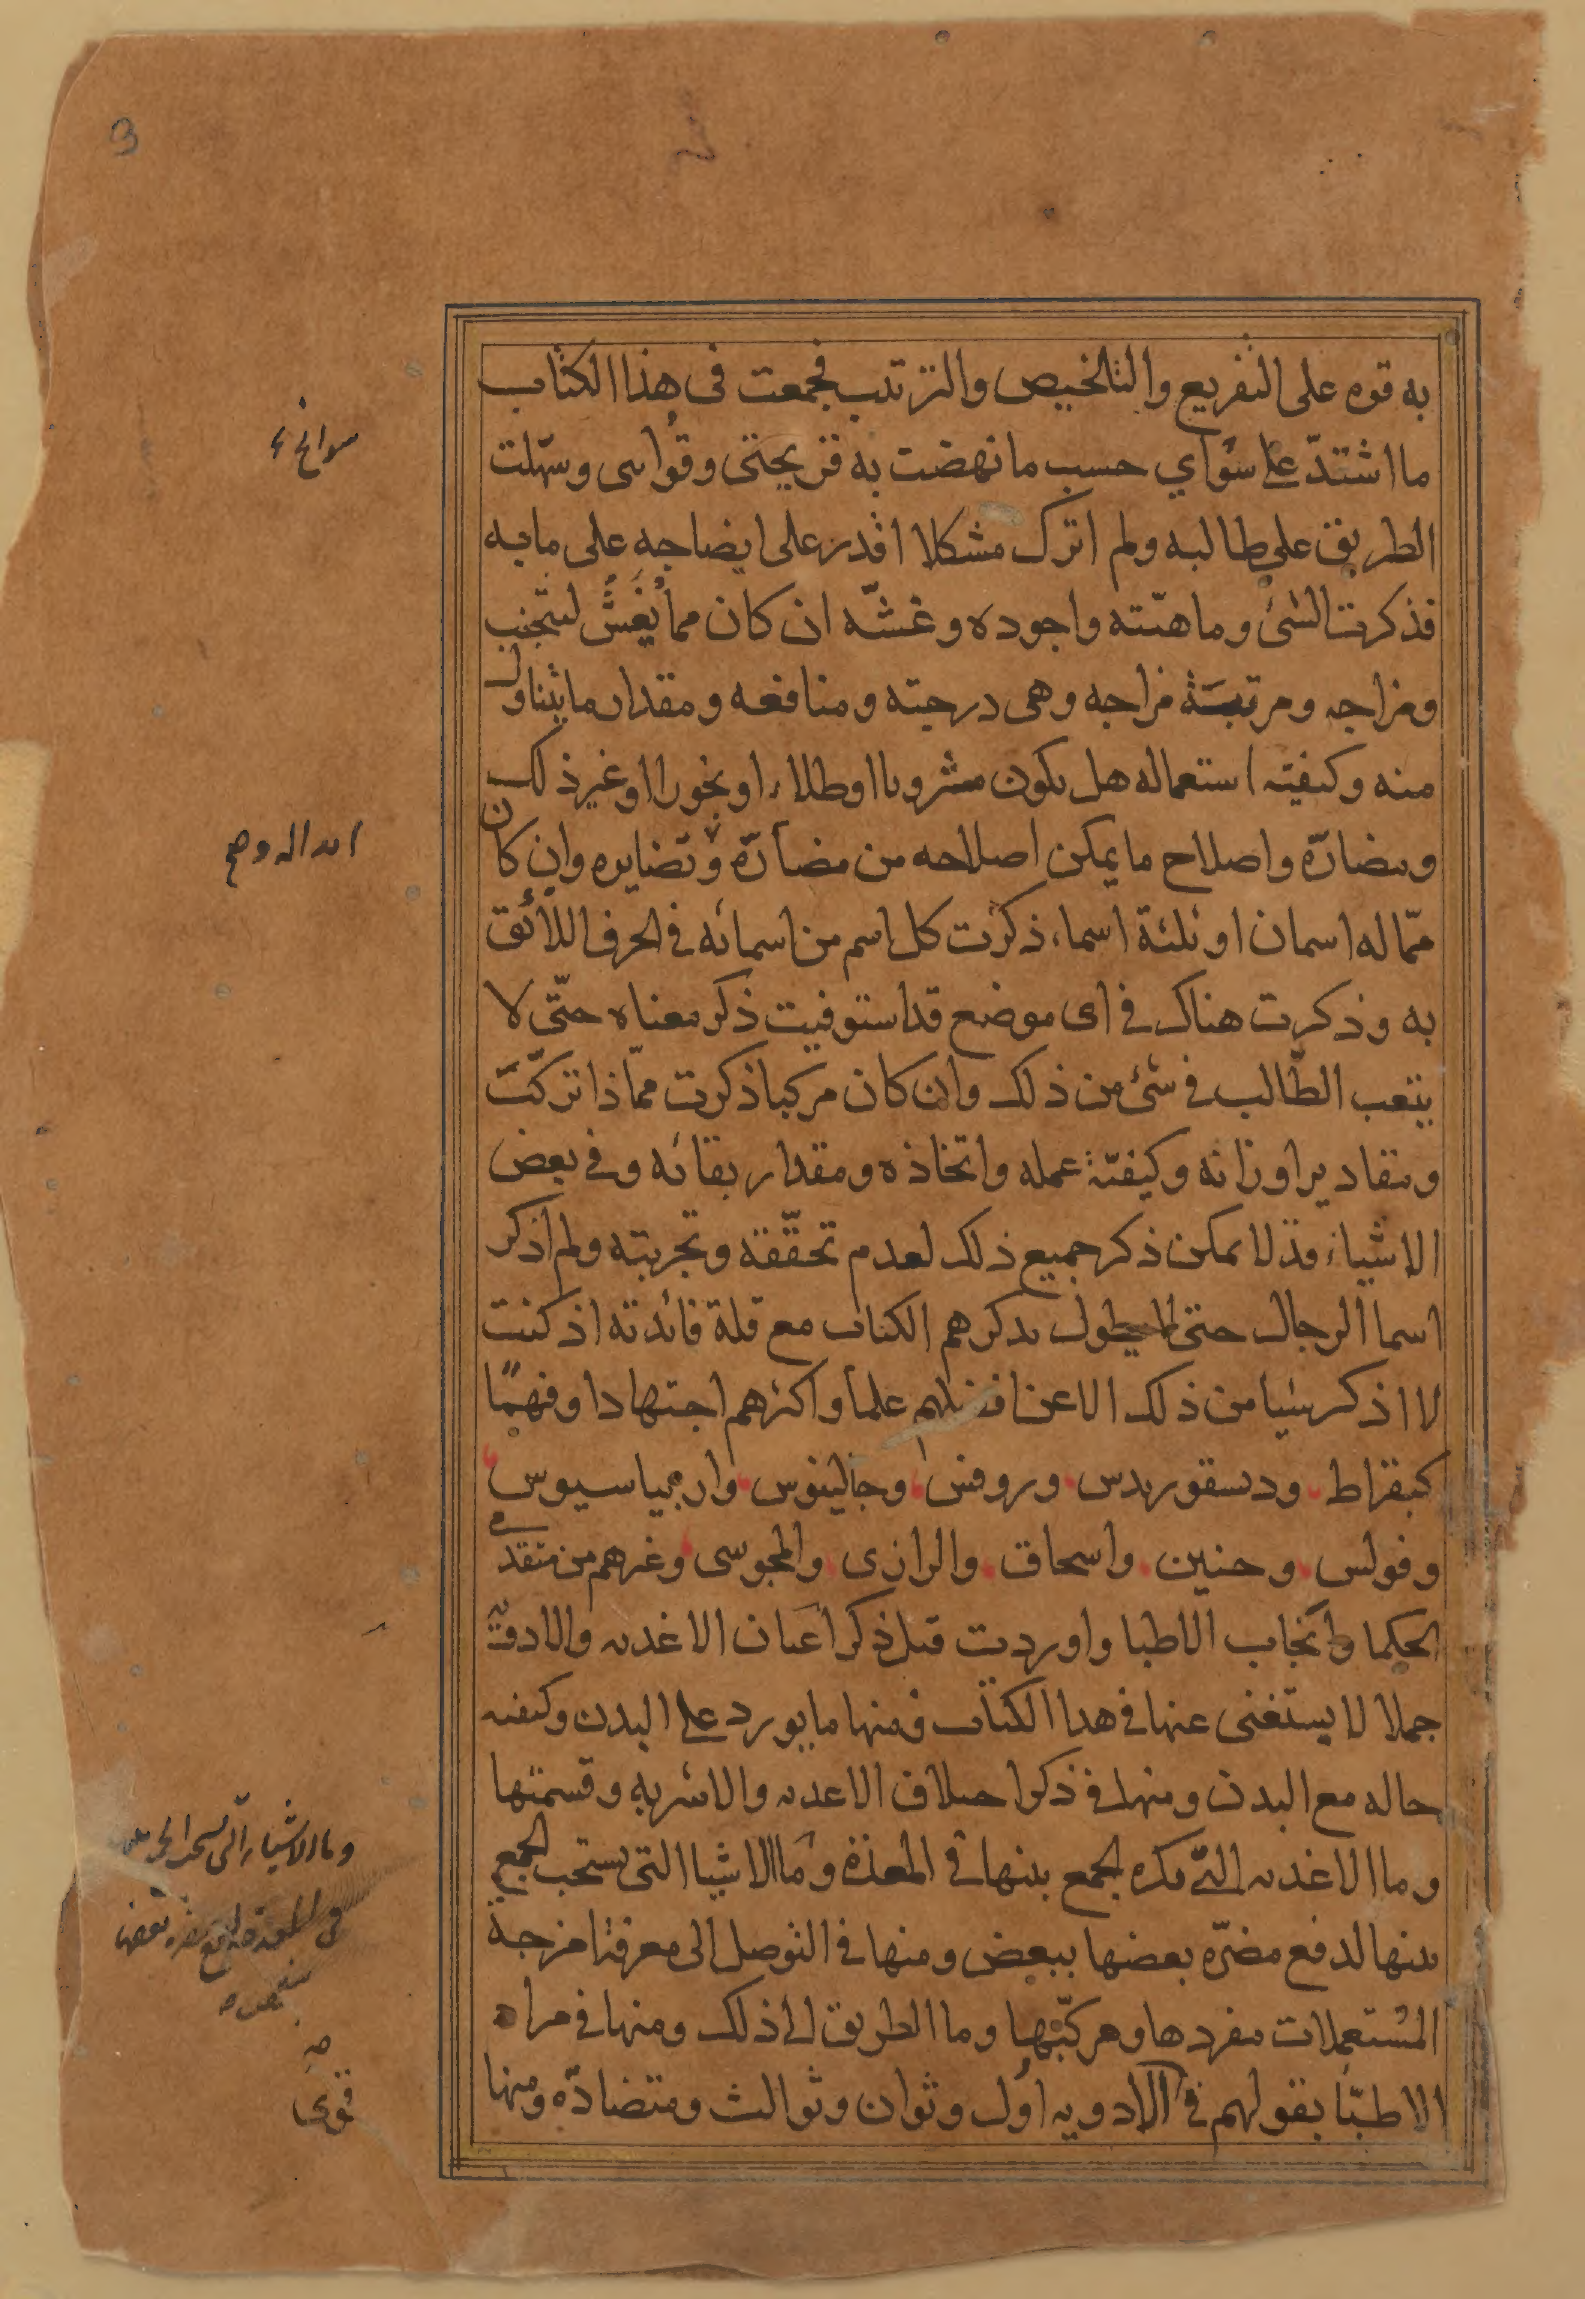 به قوه على التفريع والتلخيص والترتيب فجمعت فى هذا الكتاب
ما اشتدّ على سؤاي حسب ما نهضت به قريحتى وقواى وسهّلت
الطريق على طالبه ولم اترك مشكلا اقدر على ايضاحه على مابه
فذكرت الشئ وماهيّته واجوده وغشّه ان كان مما يُغَشُّ ليتجنب
ومزاجه ومرتبة مزاجه وهى درجته ومنافعه ومقدار ما يتناول
منه وكيفية استعماله هل يكون مشروبا او طلاء او بخورا او غير ذلك
ومضارّه واصلاح ما يمكن اصلاحه من مضارّه وان كان
ممّا له اسمان او ثلثة اسماء ذكرت كل اسم من اسمائه فى الحرف اللائق
به وذكرت هناك فى اى موضع قد استوفيت ذكر معناه حتّى لا
يتعب الطّالب فى شئ من ذلك وان كان مركبا ذكرت ممّاذا تركّبت
ومقادير اوزانه وكيفيّة عمله واتخاذه ومقدار بقائه وفى بعض
الاشياء قد لا يمكن ذكر جميع ذلك لعدم تحقّقه وتجربته ولم اذكر
اسما الرجال حتى لا يطول بذكرهم الكتاب مع قلة فائدته اذ كنت
لا اذكر شيا من ذلك الا عن افضلهم علما واكثرهم اجتهادا وفهمًا
كبقراط ودسقوريدس وروفس وجالينوس وارميباسيوس
وفولس وحنين واسحاق والرازى والمجوسى وغيرهم من متقدمى
الحكما وانجاب الاطبا واوردت قبل ذكر اعيان الاغذيه والادوية
جملا لا يستغنى عنها فى هذا الكتاب فمنها ما يورد على البدن وكيفيه
حاله مع البدن ومنها فى ذكر اختلاف الاغذيه والاشربه وقسمتها
وما الاغذيه التى يكره الجمع بينها فى المعدة وما الاشيا التى يستحب الجمع
بينها لدفع مضرّه بعضها ببعض ومنها فى التوصل الى معرفة امزجة
المستعملات مفردها ومركبّها وما الطريق الى ذلك ومنها فى مراد
الاطبّا بقولهم فى الادويه اول وثوان وثوالث ومتضادّه ومنها
سوانح
وما الاشياء التى يستحب الجمع
فى المعدة لدفع مضره بعضها
ببعض
قوى
3